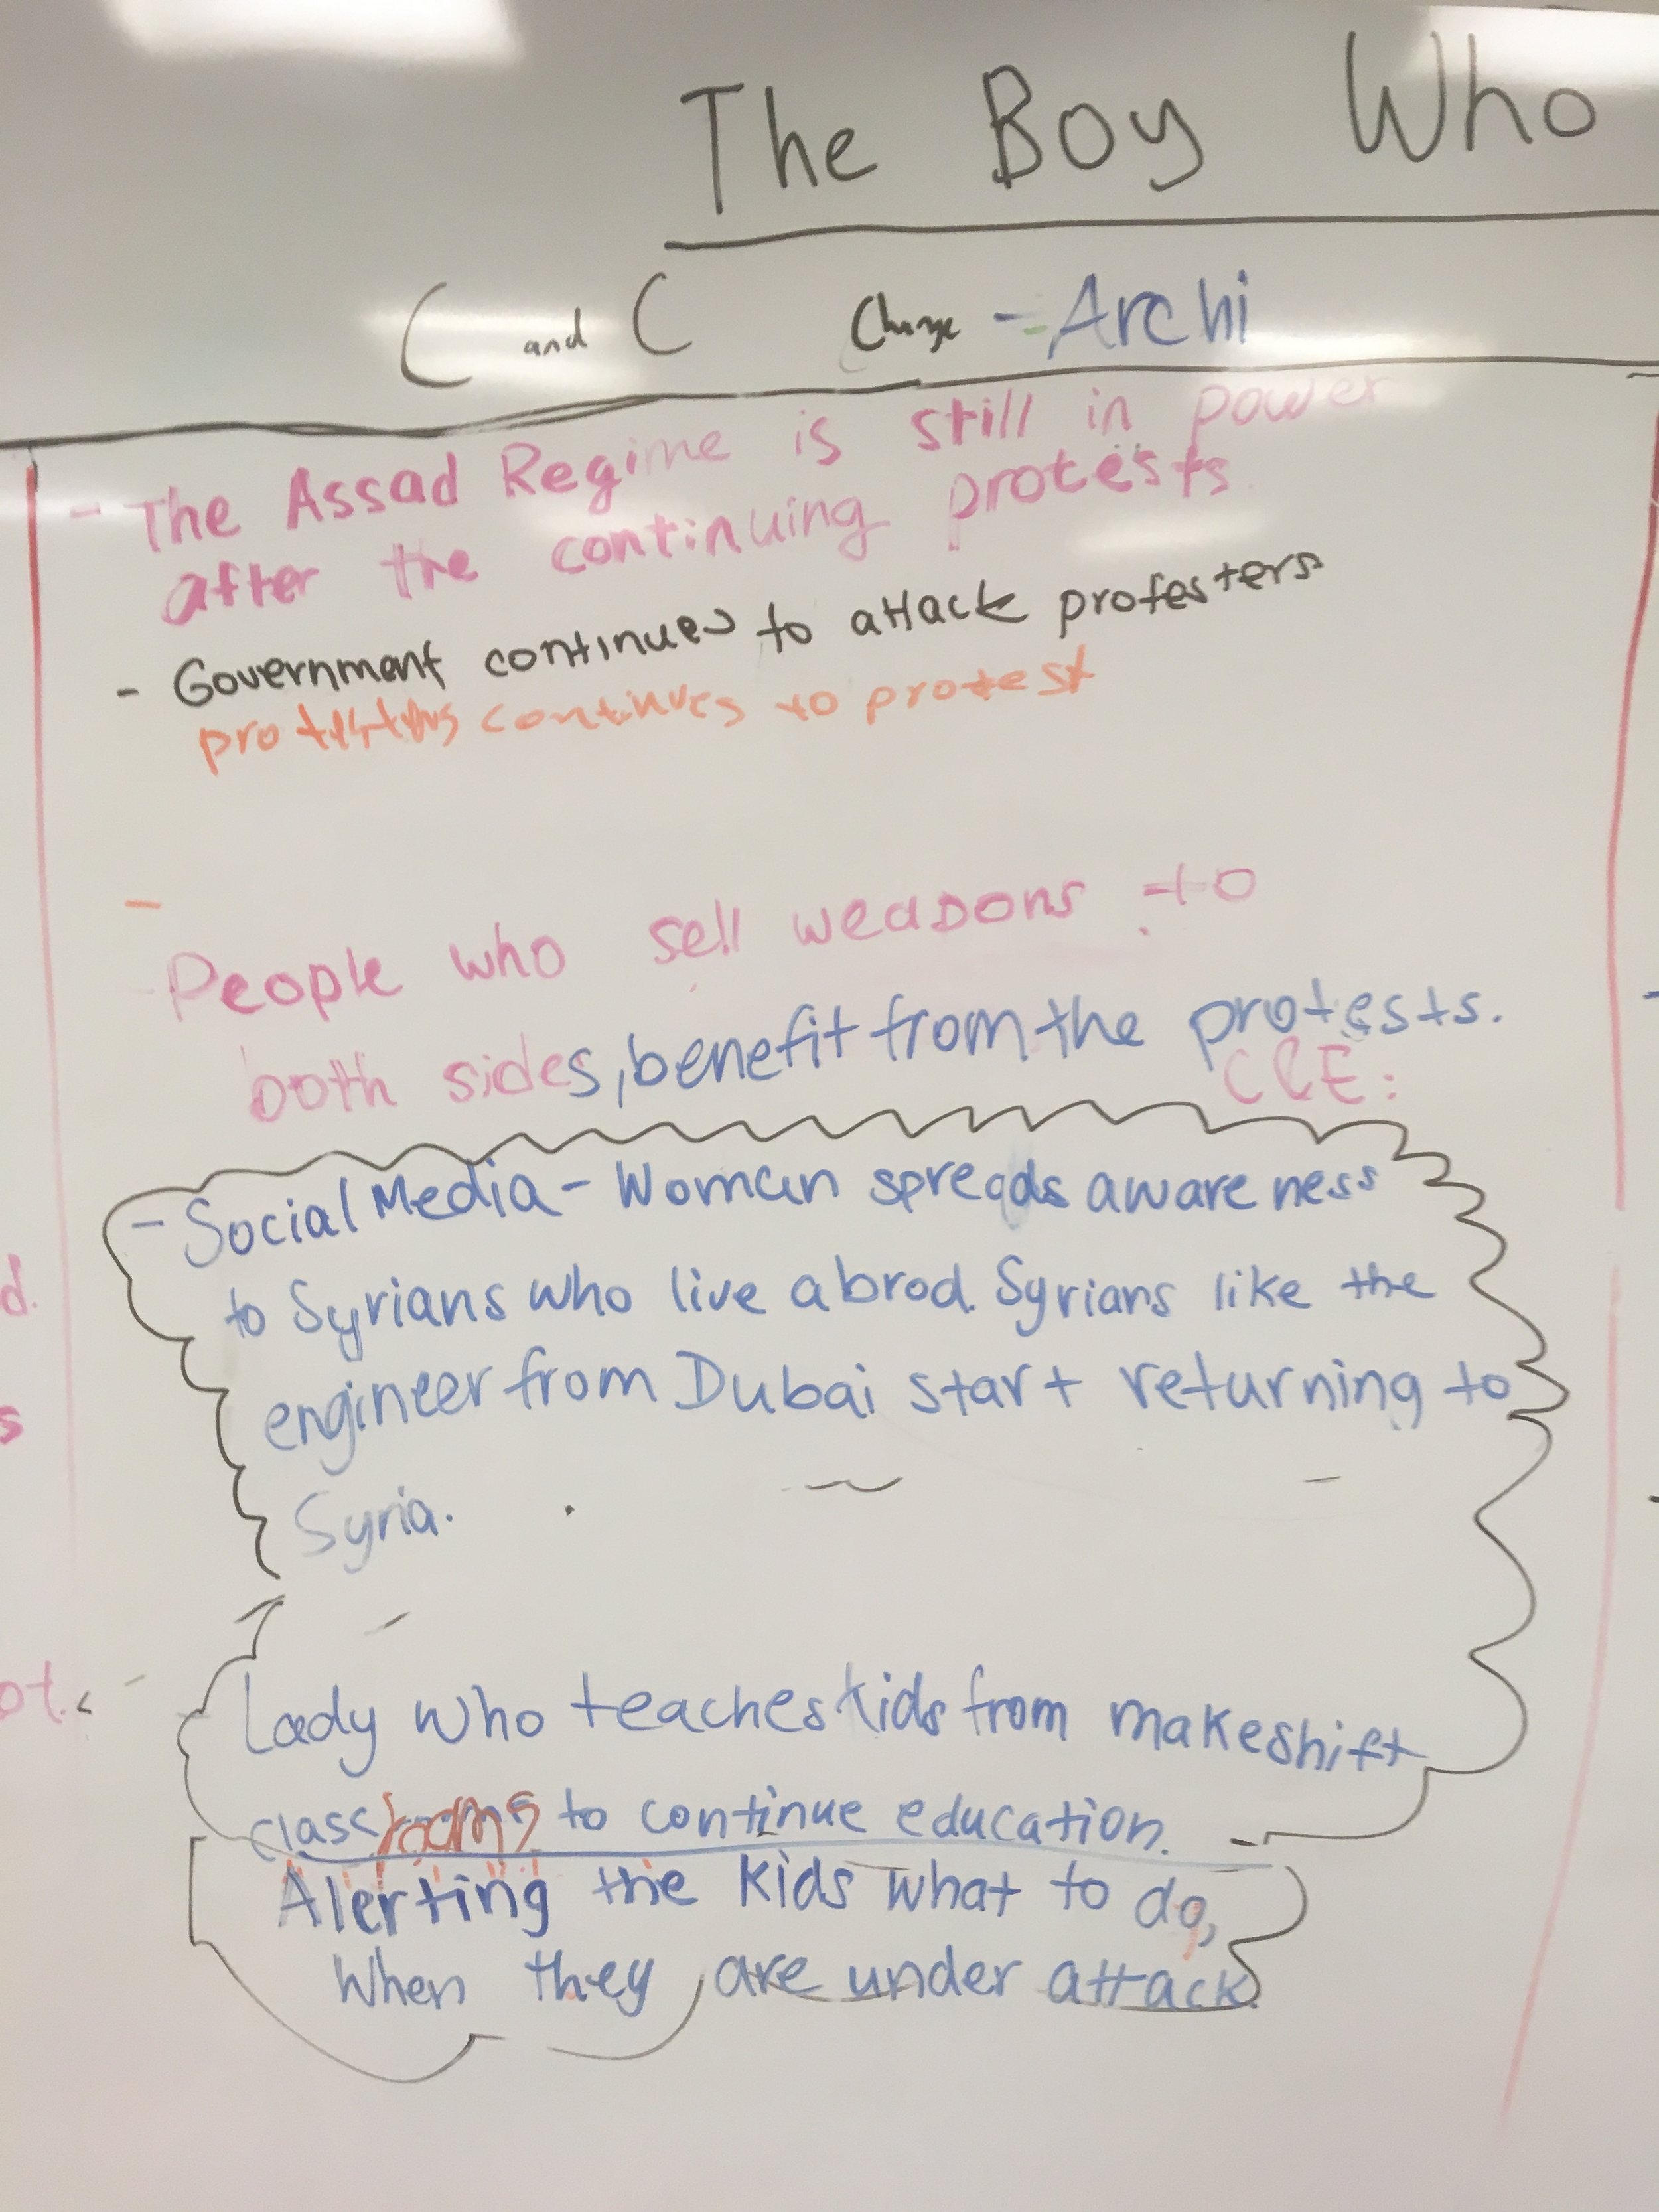 The Boy Who
C and C Change - Archi
- The Assad Regime is still in power
after the continuing protests
- Government continues to attack protesters
continues to protest
-
People who sell weapons to
both sides, benefit from the protests.
CCE:
- Social Media - Woman spreads awareness
to Syrians who live abrod. Syrians like the
engineer from Dubai start returning to
Syria.
Lady who teaches kids from makeshift
classrooms to continue education.
Alerting the kids what to do,
When they are under attack.
d.
s
ot.